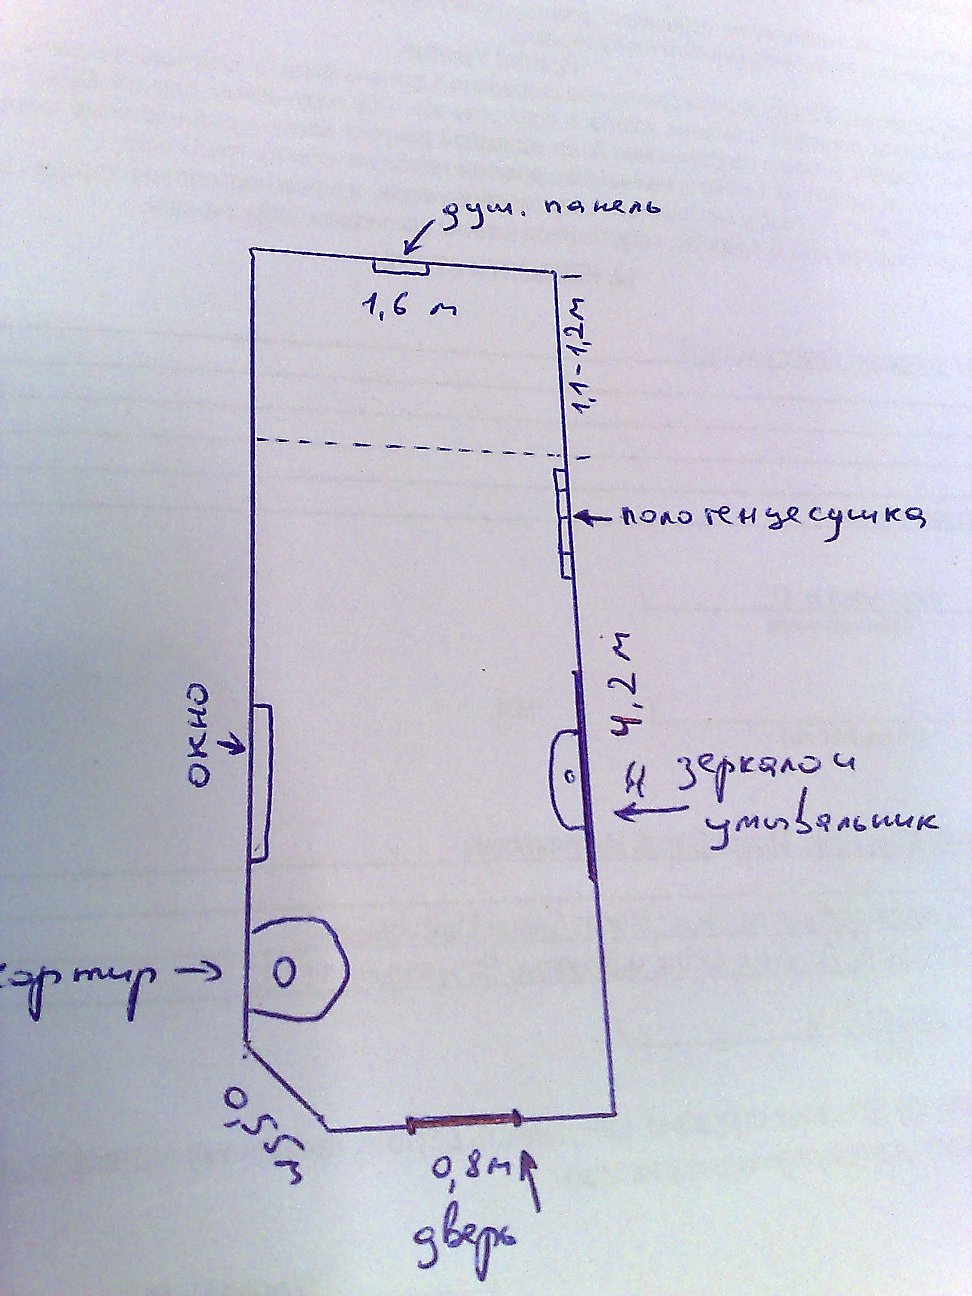 душ. панель
1,6 м
1,1-1,2м
полотенцесушка
4,2 м
окно
зеркало и
умывальник
0,55м
0,8м
дверь